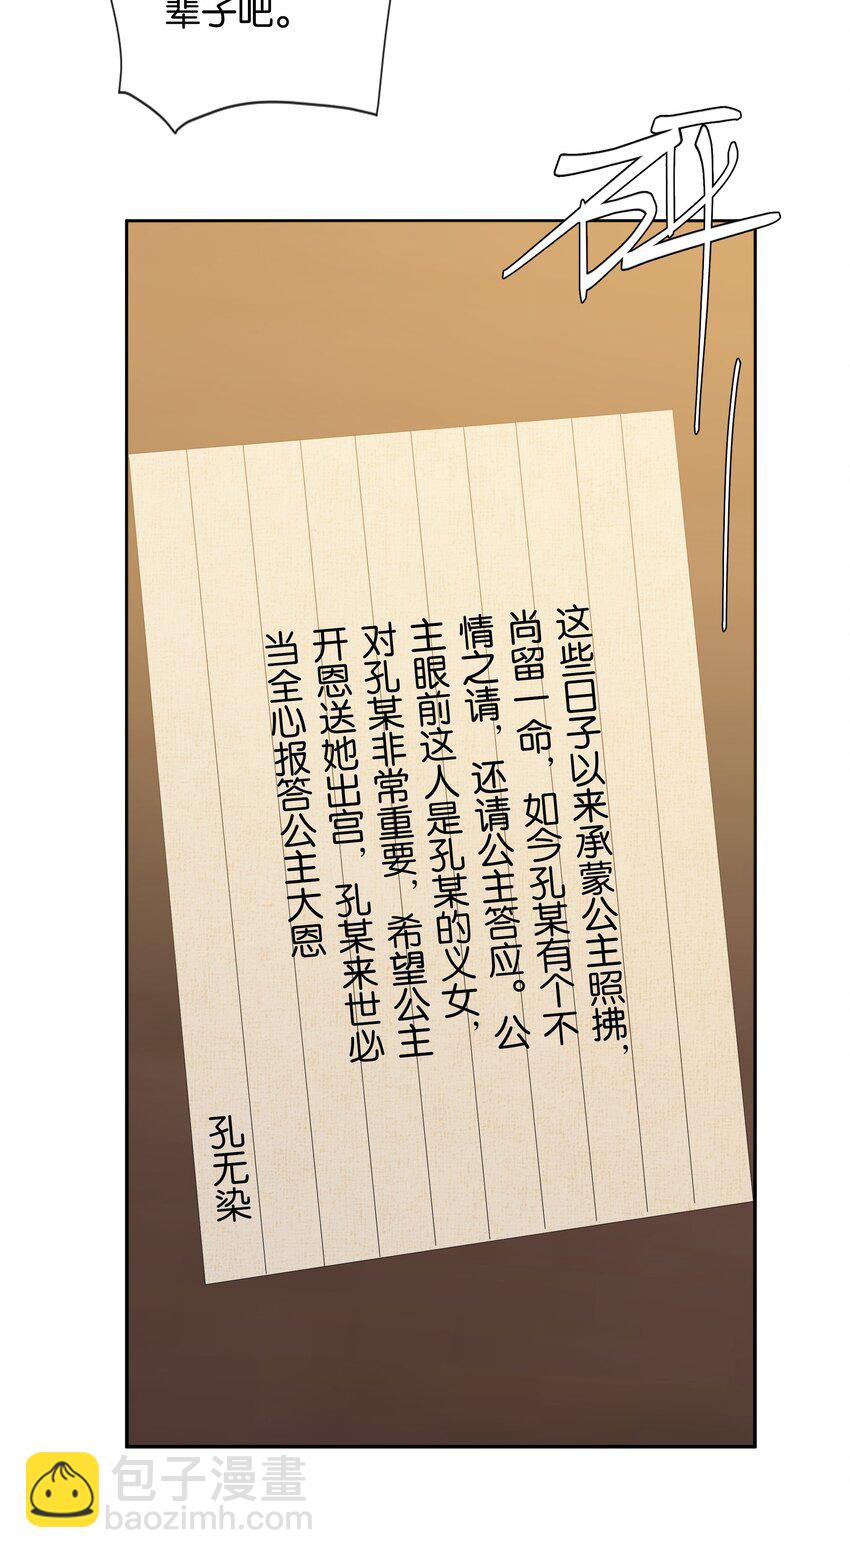 辈子吧。
砰
这些日子以来承蒙公主照拂，
尚留一命，如今孔某有个不
情之请，还请公主答应。公
主眼前这人是孔某的义女，
对孔某非常重要，希望公主
开恩送她出宫，孔某来世必
当全心报答公主大恩
孔无染
包子漫畫
baozimh.com